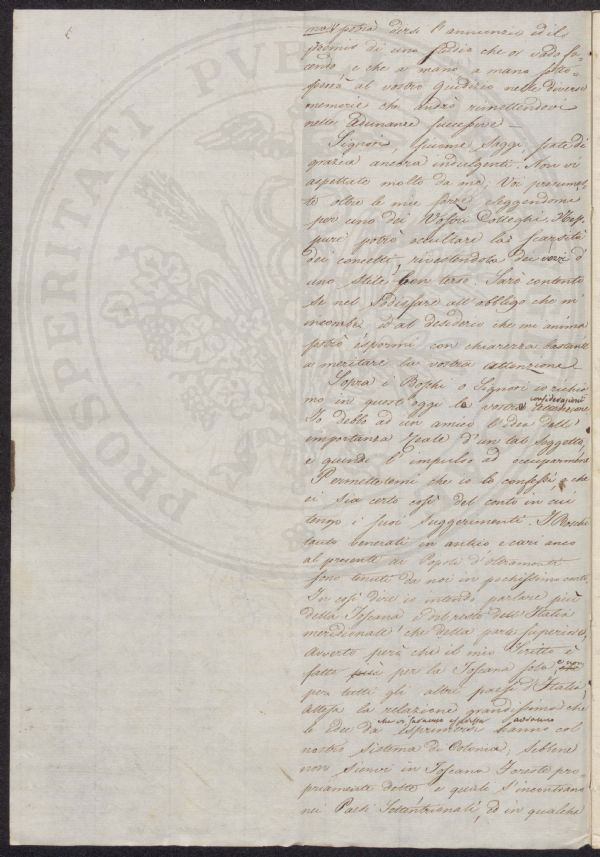 potrà dirsi l'annunzio ed il
premio di uno studio che or vado fa=
cendo e che a mano a mano sotto=
porrò al vostro giudizio nelle diverse
memorie che andrò rimettendovi
nelle Adunanze successive.
Signori, siccome Saggi siate di
grazia ancora indulgenti. Non vi
aspettate molto da me, Voi presume=
te oltre le mie forze eleggendomi
per uno dei Vostri Colleghi. Nep=
pure potrò occultare la scarsità
dei concetti, rivestendola dei vezzi d'
uno stile ben terso. Sarò contento
se nel sodisfare all'obbligo che m'
incombe, ed al desiderio che mi anima
potrò espormi con chiarezza bastante
a meritare la vostra attenzione.
Sopra i Boschi o Signori io richia
mo in quest'oggi la vostra considerazione
Io debbo ad un amico l'idea dell'
importanza reale d'un tal soggetto,
e quindi l'impulso ad occuparmene
Permettetemi che io lo confessi, e che
ei sia certo così del conto in cui
tengo i suoi suggerimenti. I Boschi
tanto venerati in antico e cari anco
al presente ai Popoli d'oltramonte
sono tenuti da noi in pochissimo conto
In così dire io intendo parlare più
della Toscana e del resto dell'Italia
meridionale che della parte superiore,
avverto però che il mio scritto è
fatto per la Toscana sola, e non
per tutti gli altri paesi d'Italia,
attesa la relazione grandissima che
le Idee da esprimersi hanno col
nostro sistema di Colonia; sebbene
non sienvi in Toscana Foreste pro=
priamente dette e quali s'incontrano
nei Paesi Settentrionali, ed in qualche